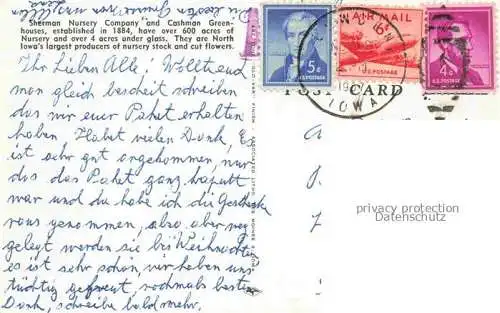 Sherman Nursery Company and Cashman Green-
houses, established in 1884, have over 600 acres of
Nursery and over 4 acres under glass. They are North
Iowa's largest producers of nursery stock and cut flowers.
Ihr Lieben Alle! Wollt euch
man gleich bescheid schreiben
das mir euer Paket erhalten
haben Habet vielen Dank, Es
ist sehr gut angekommen nur
das das Paket ganz kaputt
war und du habe ich die Geschenke
raus genommen, also aber weg
gelegt werden sie bis Weihnachten
es ist sehr schön wir haben uns
tüchtig gefreut, nochmals besten
Dank, schreibe bald mehr.
5¢
U.S. POSTAGE
AIR MAIL
6¢
U.S. POSTAGE
4¢
U.S. POSTAGE
IOWA
POST CARD
privacy protection
Datenschutz